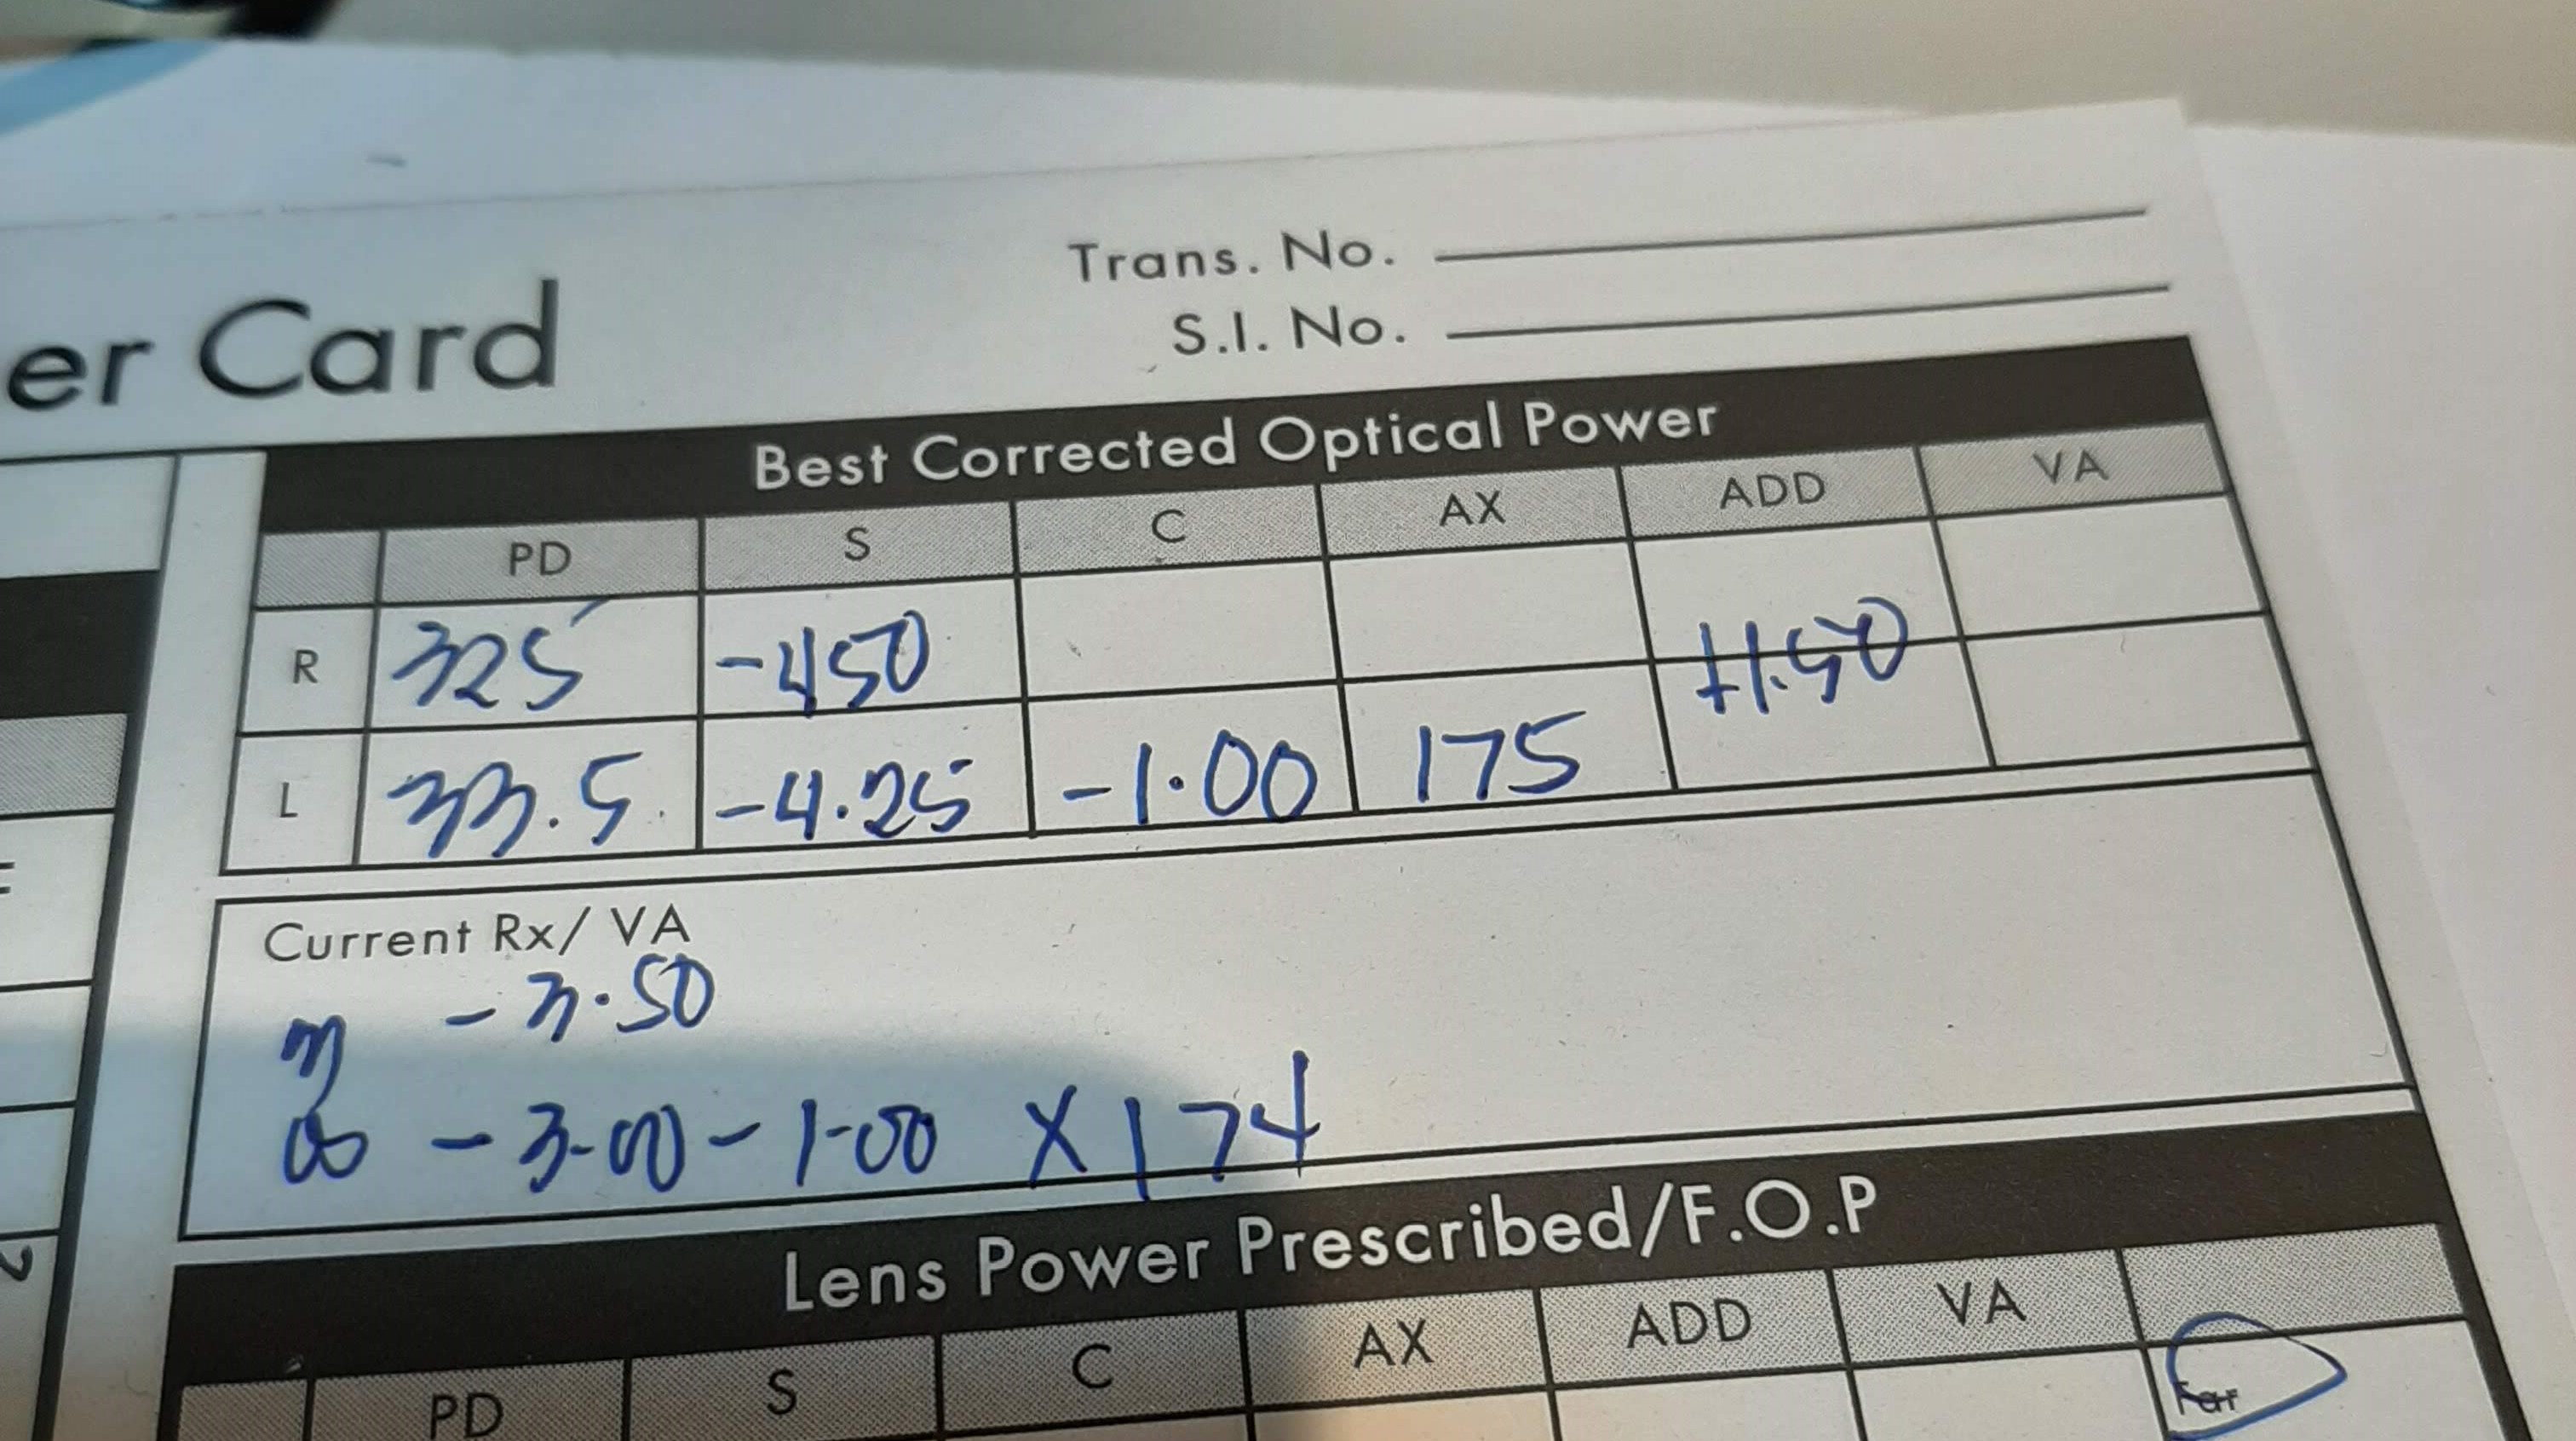 Trans. No.
S.I. No.
er Card
Best Corrected Optical Power
PD S C AX ADD VA
R 325 -450 +1.50
L 33.5 -4.25 -1.00 175
Current Rx/ VA
-3.50
-3.00 -1.00 X 174
Lens Power Prescribed/F.O.P
PD S C AX ADD VA
Far